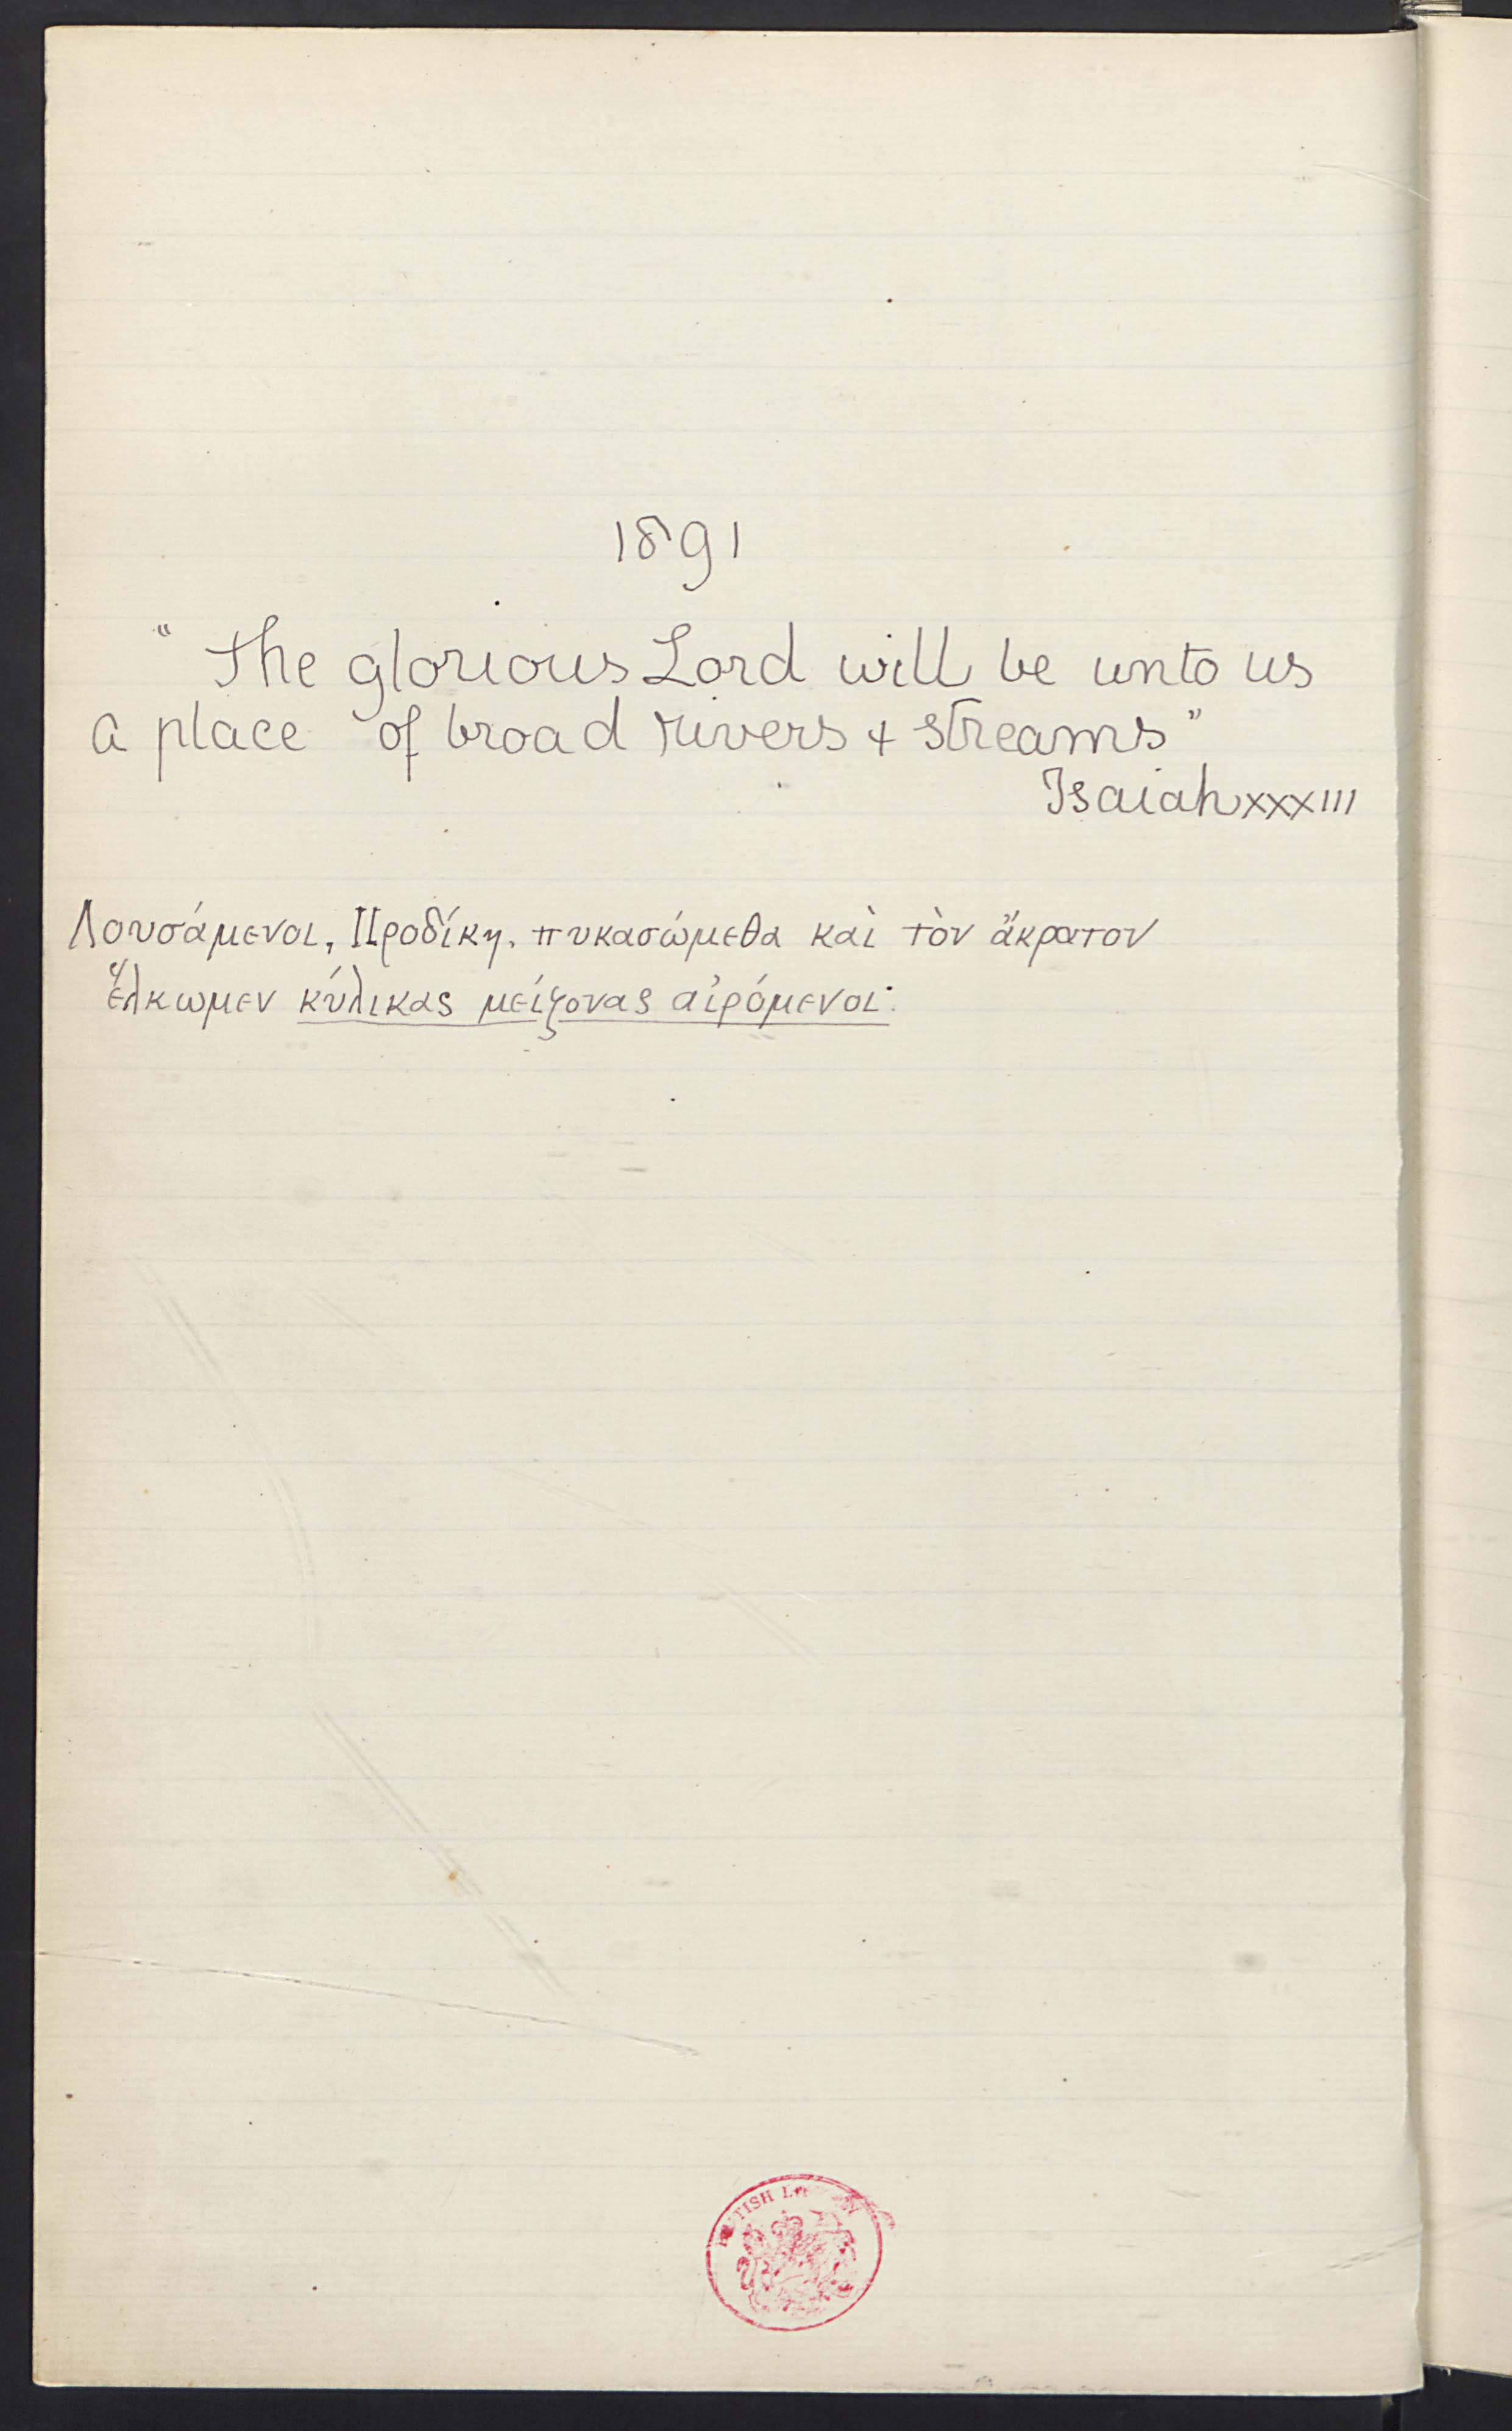 1891
"The glorious Lord will be unto us
a place of broad rivers + streams"
Isaiah xxxiii
Λουσάμενοι, Προδίκη, πυκασώμεθα καὶ τὸν ἄκρατον
ἕλκωμεν κύλικας μείζονας αἰρόμενοι·
BRITISH LIBRARY